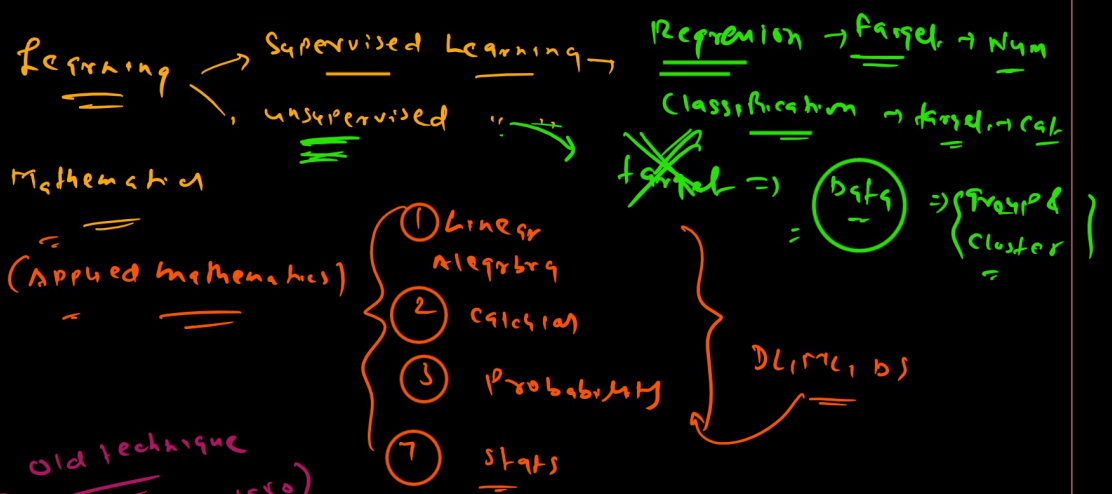 Learning → Supervised Learning → Regression → target → Num
Classification → target → Cat
unsupervised " "
target => Data => { group & cluster }
Mathematics
(Applied mathematics)
1 Linear Algebra
2 Calculas
3 Probability
7 stats
DL, ML, DS
old technique